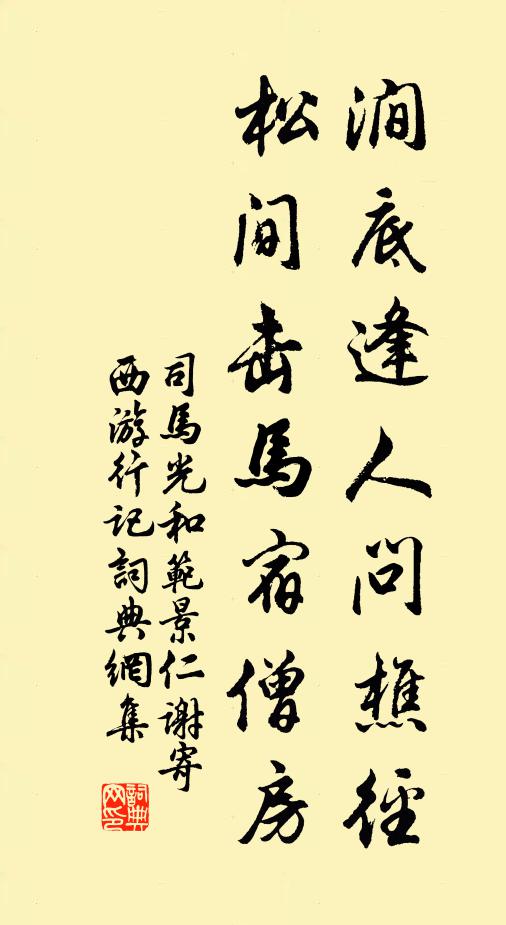 澗底逢人問樵徑
松間击馬宿僧房
司馬光和範景仁謝寄
西游行記詞典網集
詞典
网印